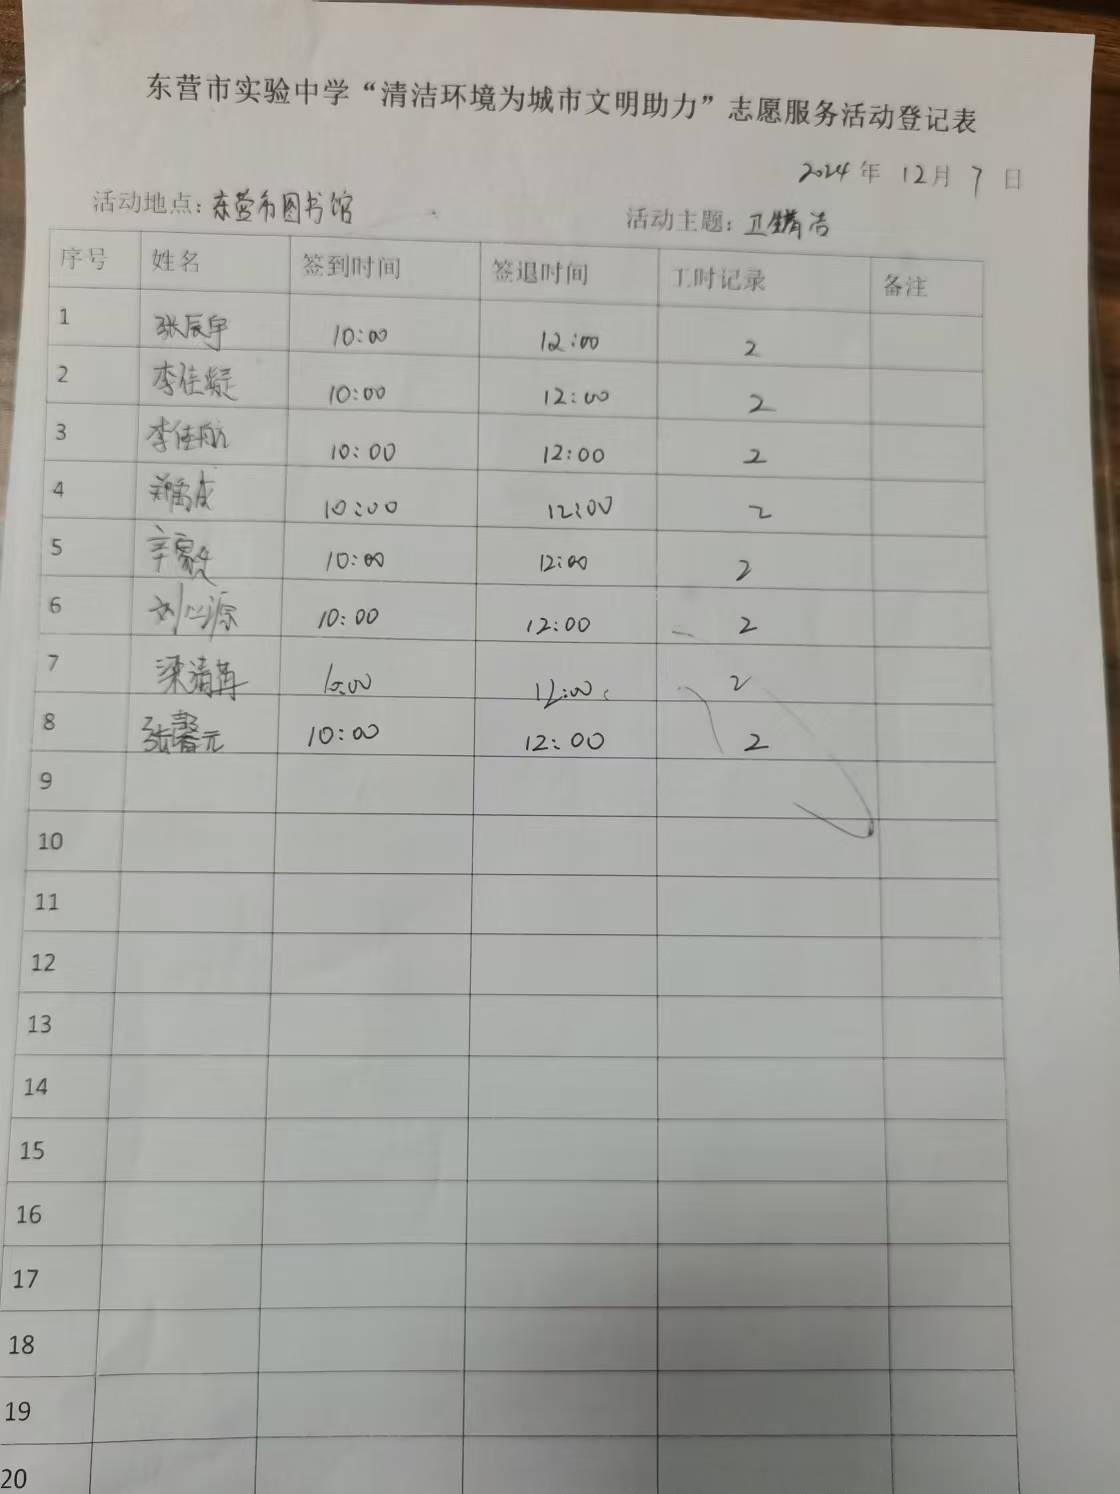 东营市实验中学“清洁环境为城市文明助力”志愿服务活动登记表
2024年 12月 7 日
活动地点：东营市图书馆 活动主题：卫生清洁
序号 姓名 签到时间 签退时间 工时记录 备注
1 张辰宇 10:00 12:00 2
2 李佳凝 10:00 12:00 2
3 李佳航 10:00 12:00 2
4 10:00 12:00 2
5 10:00 12:00 2
6 10:00 12:00 2
7 梁清再 10:00 12:00 2
8 张馨元 10:00 12:00 2
9
10
11
12
13
14
15
16
17
18
19
20